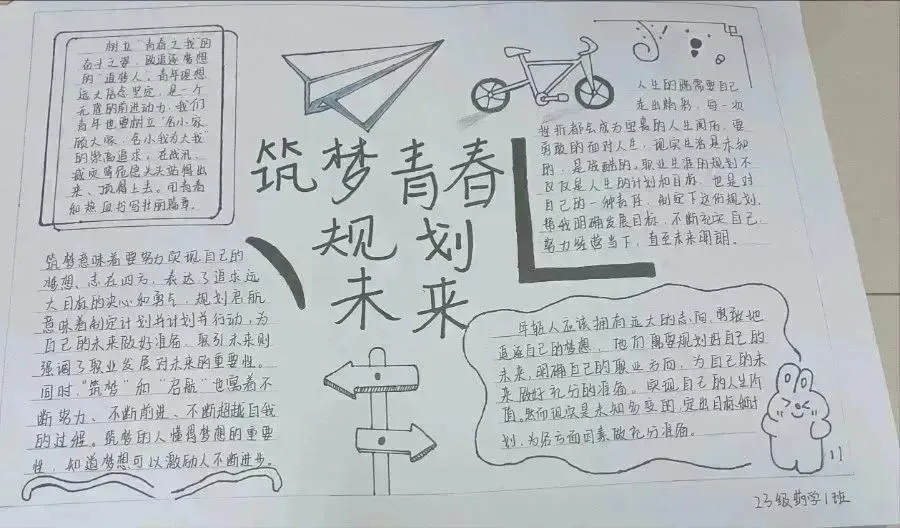 筑梦青春
规划
未来
树立“青春之我”的
奋斗之举，做追逐梦想
的“追梦人”。青年理想
远大信念坚定，是一个
无坚的前进动力，我们
青年也要树立“舍小家
顾大家，舍小我为大我”
的崇高追求，在战汛、
战灾等危急关头站得出
来、顶得上去。用青春
和热血书写壮丽篇章。
人生的路需要自己
走出精彩，每一次
挫折都会成为宝贵的人生阅历，要
勇敢的面对人生，现实生活是未知
的，是残酷的。职业生涯的规划不
仅仅是人生的计划和目标，也是对
自己的一种责任，制定下这份规划，
帮我明确发展目标，不断充实自己，
努力经营当下，直至未来明朗。
筑梦意味着要努力实现自己的
梦想、志在四方，表达了追求远
大目标的决心和勇气，规划启航
意味着制定计划并计划并行动，为
自己的未来做好准备。职引未来则
强调了职业发展对未来的重要性。
同时，“筑梦”和“启航”也寓着不
断努力、不断前进、不断超越自我
的过程。筑梦的人懂得梦想的重要
性，知道梦想可以激励人不断进步。
年轻人应该拥有远大的志向，勇敢地
追逐自己的梦想，他们需要规划好自己的
未来，明确自己的职业方向，为自己的未
来做好充分的准备。实现自己的人生价
值。然而现实是未知多变的，定出目标
计划，为各方面因素做充分准备。
23级药学1班